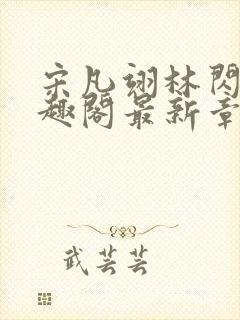 宋凡翊林閃
趣閣最新章
武芸芸